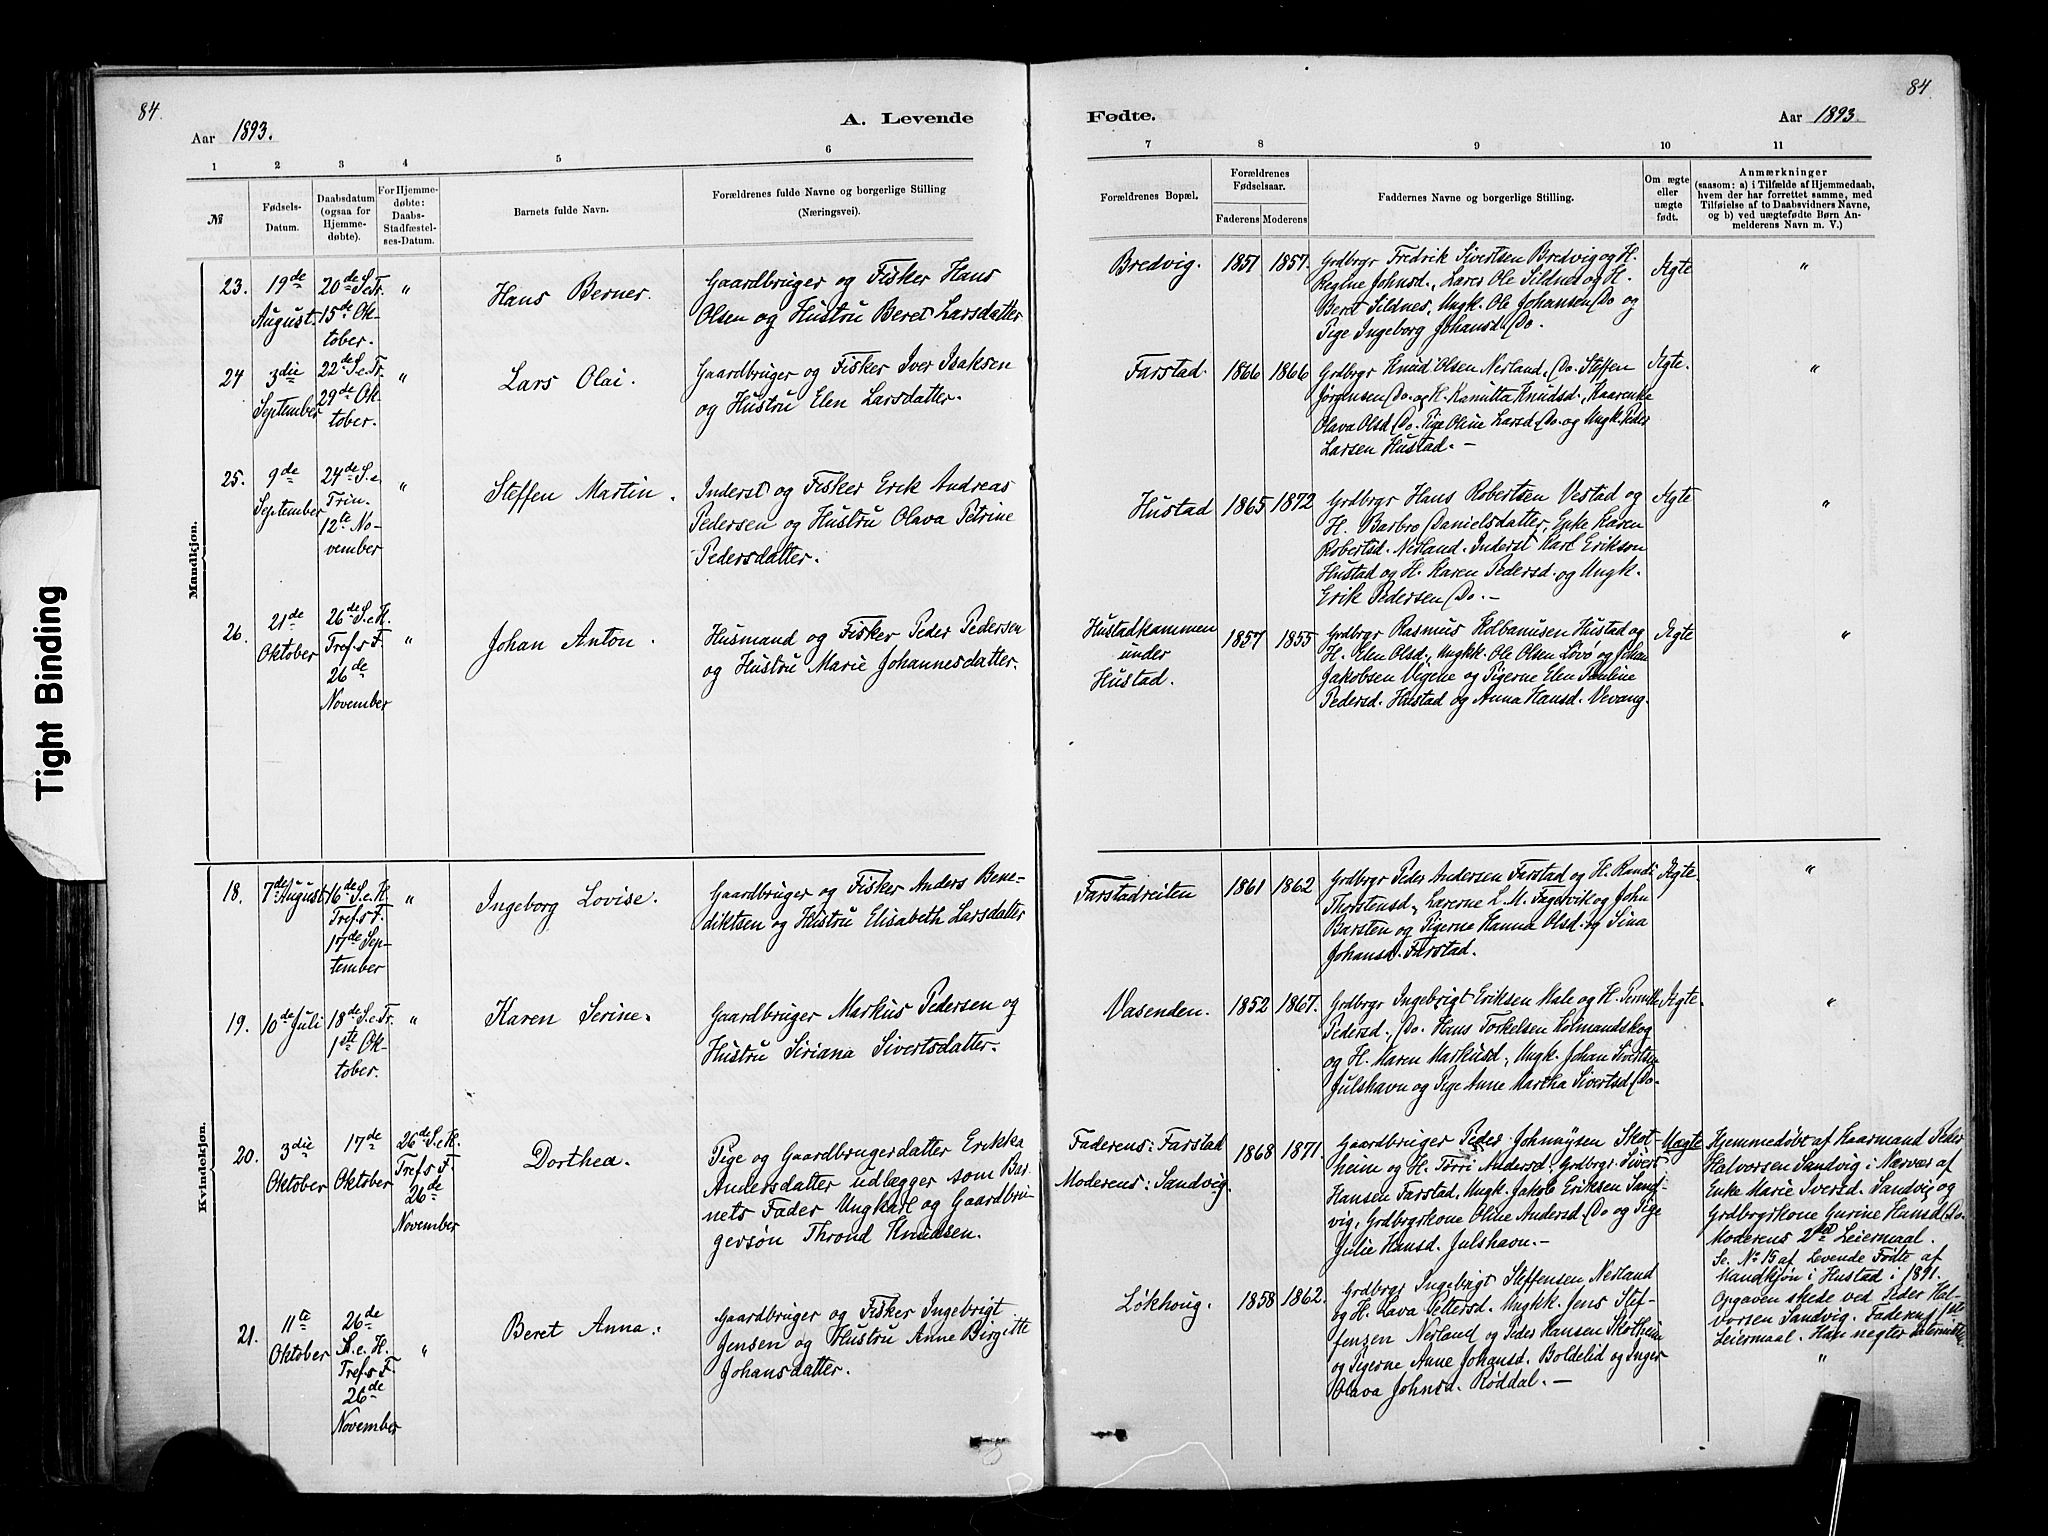 84.
84
Aar 1893.
A. Levende
Fødte.
Aar 1893.
1 2 3 4 5 6
7 8 9 10 11
№
Fødsels-
Datum.
Daabsdatum
(ogsaa for
Hjemme-
døbte).
For Hjemme-
døbte:
Daabs-
Stadfæstel-
ses-Datum.
Barnets fulde Navn.
Forældrenes fulde Navne og borgerlige Stilling
(Næringsvei).
Forældrenes Bopæl.
Forældrenes
Fødselsaar.
Faderens Moderens
Faddernes Navne og borgerlige Stilling.
Om ægte
eller
uægte
født.
Anmærkninger
(saasom: a) i Tilfælde af Hjemmedaab,
hvem der har forrettet samme, med
Tilføielse af to Daabsvidners Navne,
og b) ved uægtefødte Børn An-
melderens Navn m. V.)
Mandkjøn.
23.
19de
August.
20de S.e.Tr.
15de Ok-
tober.
"
Hans Berner.
Gaardbruger og Fisker Hans
Olsen og Hustru Beret Larsdatter
Bredvig.
1851
1857.
Grdbrgr Fredrik Sivertsen Bredvig og H.
Regine Johnsd., Lærer Ole Sildnes og H.
Beret Sildnes, Ungk. Ole Johansen Do og
Pige Ingeborg Johansd. Do.
Ægte
"
24
3die
September
22de S.e.Tr.
29de Ok-
tober.
"
Lars Olai.
Gaardbruger og Fisker Iver Isaksen
og Hustru Elen Larsdatter.
Farstad.
1866
1866
Grdbrgr Knud Olsen Nerland, Do. Steffen
Jørgensen Do. og H. Kanutta Knudsd., Kaarenke
Olava Olsd. Do. Pige Oline Larsd. Do. og Ungk. Peder
Larsen Hustad. —
Ægte.
"
25.
9de
September
24de S.e.
Trin.
12te No-
vember
"
Steffen Martin.
Inderst og Fisker Erik Andreas
Pedersen og Hustru Olava Petrine
Pedersdatter.
Hustad
1865
1872
Grdbrgr Hans Robertsen Vestad og
H. Barbro Danielsdatter, Enke Karen
Robertsd. Nerland. Inderst Karl Erikson
Hustad og H. Karen Pedersd. og Ungk.
Erik Pedersen Do. —
Ægte
"
26.
21de
Oktober
26de S.e.H.
Tref.s F.
26de
November
"
Johan Anton.
Husmand og Fisker Peder Pedersen
og Hustru Marie Johannesdatter.
Hustadkammen
under
Hustad.
1857
1855
Grdbrgr Rasmus Kolbanusen Hustad og
H. Elen Olsd., Ungkk. Ole Olsen Lovø og Johan
Jakobsen Vigene og Pigerne Elen Pauline
Pedersd. Hustad og Anna Hansd. Vevang.
Ægte
"
Kvindekjøn.
18.
7de August
16de S.e.H.
Tref.s F.
17de Sep-
tember
"
Ingeborg Lovise.
Gaardbruger og Fisker Anders Bene-
diktsen og Hustru Elisabeth Larsdatter
Farstadreiten
1861
1862
Grdbrgr Peder Andersen Farstad og H. Randi
Thorstensd., Lærerne L. M. Fagervik og John
Barsten og Pigerne Hanna Olsd. og Sina
Johansd. Farstad.
Ægte.
"
19.
10de Juli
18de S.e.Tr.
1ste Ok-
tober.
"
Karen Serine.
Gaardbruger Markus Pedersen og
Hustru Siriana Sivertsdatter.
Vasenden.
1852
1867.
Grdbrgr Ingebrigt Eriksen Male og H. Pernille
Pedersd., Do. Hans Torkelsen Holmandskog
og H. Maren Markusd., Ungk. Johan Sivertsen
Julshavn og Pige Anne Martha Sivertsd. Do.
Ægte.
"
20.
3die
Oktober
17de
Oktober
26de S.e.H.
Tref.s F.
26de
November
Dorthea.
Pige og Gaardbrugerdatter Erikka
Andersdatter udlægger som Bar-
nets Fader Ungkarl og Gaardbru-
gersøn Thrond Knudsen.
Faderens: Farstad
Moderens: Sandvig.
1868
1871.
Gaardbruger Peder Johnsen Skot-
heim og H. Torri Andersd., Grdbrgr Sivert
Hansen Farstad, Ungk. Jakob Eriksen Sand-
vig, Grdbrgrkone Oline Andersd. Do og Pige
Julie Hansd. Julshavn. —
Uægte
Hjemmedøbt af Kaarmand Peder
Halvorsen Sandvig i Nærvær af
Enke Marie Iversd. Sandvig og
Grdbrgrkone Gurine Hansd. Do.
Moderens 2det Leiermaal.
Se № 15 af Levende Fødte af
Mandkjøn i Hustad i 1891.
Opgaven skede ved Peder Hal-
vorsen Sandvig. Faderens 1ste
Leiermaal. Han negter Paterniteten.
21.
11te
Oktober
26de
S.e.H.
Tref.s F.
26de
November
"
Beret Anna.
Gaardbruger og Fisker Ingebrigt
Jensen og Hustru Anne Birgitte
Johansdatter.
Løkhoug.
1858
1862.
Grdbrgr Ingebrigt Steffensen Nerland
og H. Lava Pettersd. Ungkk. Jens Stef-
fensen Nerland og Peder Hansen Skotheim
og Pigerne Anne Johansd. Boldelid og Inger
Olava Johnsd. Røddal. —
"
Tight Binding